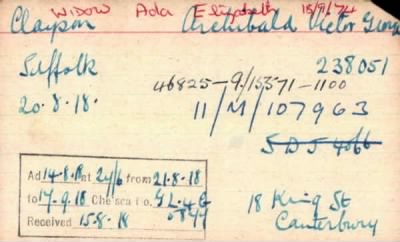 Widow Ada Elizabeth 15/9/74
Claypson Archibald Victor George
Suffolk 238051
46825-9/15371-1100
20.8.18. 11/M/107963
SDS 4066
Ad 14.8.18 nt 24/6 from 21.8.18
to 17.9.18 Chelsea f.o.
Received 15.8.18
18 King St
Canterbury